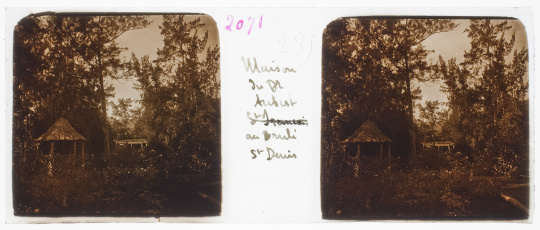 2071
235
Maison
du Dr
Aubert
St
au Brulé
St Denis